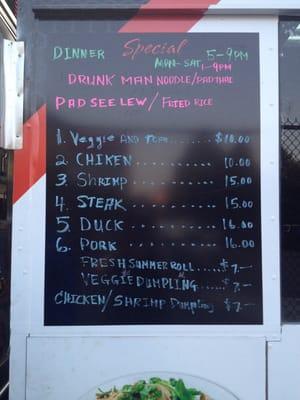 DINNER Special 5-9PM
MON-SAT 1-9PM
DRUNK MAN NOODLE/PAD THAI
PAD SEE LEW/ FRIED RICE
1. Veggie AND TOFU........ $10.00
2. CHIKEN.......... 10.00
3. Shrimp.......... 15.00
4. STEAK.......... 15.00
5. DUCK.......... 16.00
6. PORK.......... 16.00
FRESH SUMMER ROLL..... $7.—
VEGGIE DUMPLING..... $7.—
CHICKEN/SHRIMP Dumpling $7.—